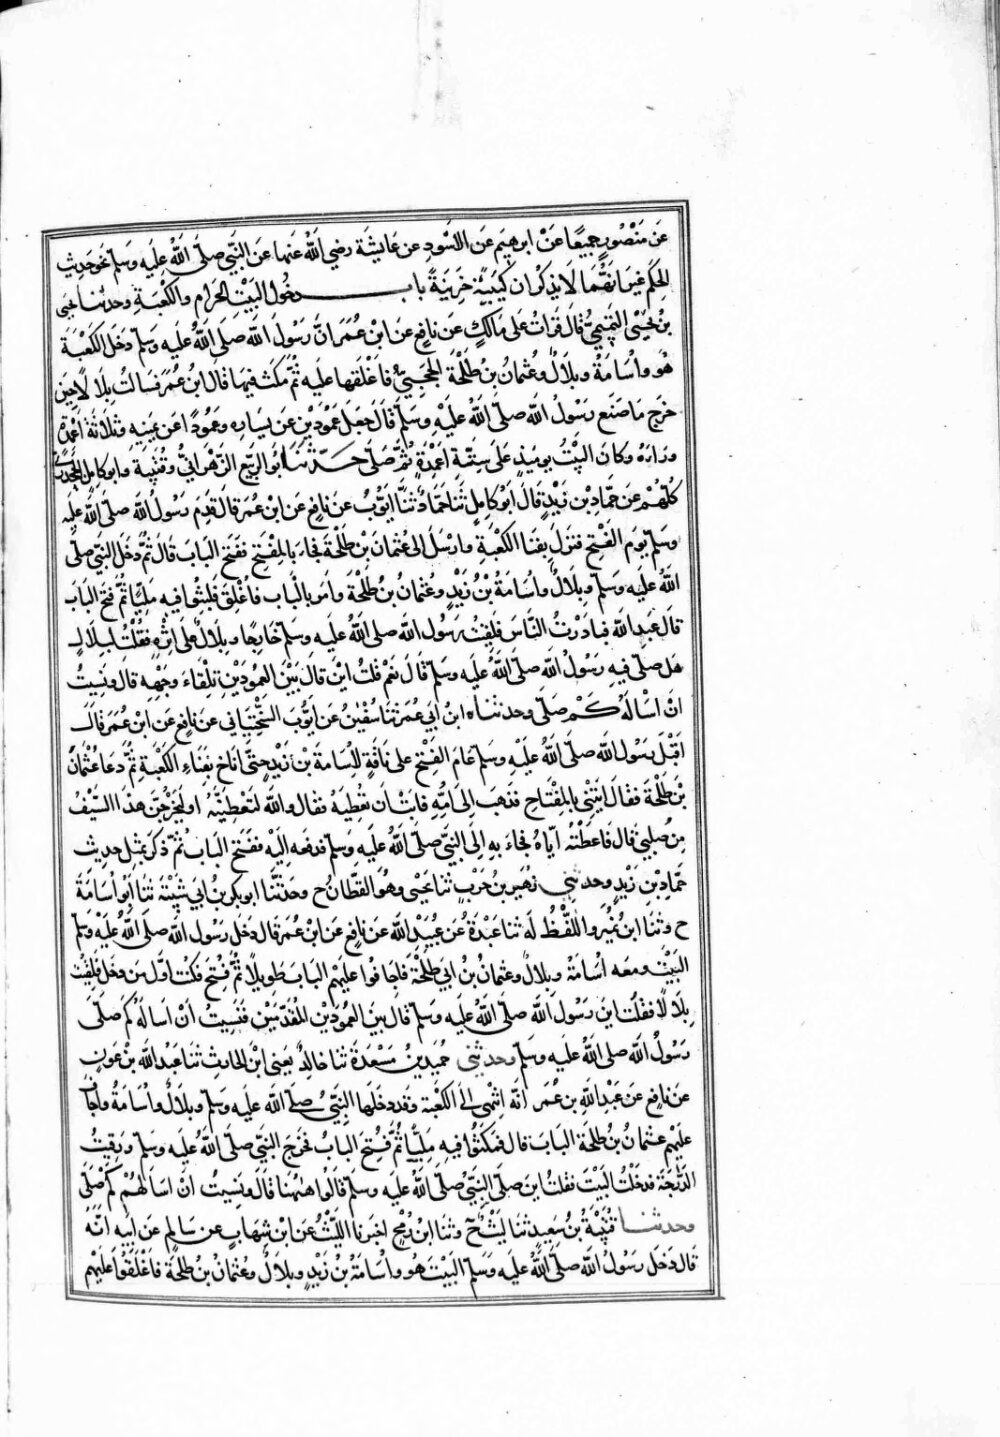 عن منصور جميعا عن ابرهيم عن الاسود عن عايشة رضي الله عنها عن النبي صلى الله عليه وسلم نحو حديث
الحكم غير انهما لا يذكران كيبة خزينة باب دخول البيت الحرام والكعبة وحدثنا يحيى
بن يحيى التميمي قال قرات على مالك عن نافع عن ابن عمر ان رسول الله صلى الله عليه وسلم دخل الكعبة
هو واسامة وبلال وعثمان بن طلحة الحجبي فاغلقها عليه ثم مكث فيها قال ابن عمر فسالت بلالا حين
خرج ما صنع رسول الله صلى الله عليه وسلم قال جعل عمودين عن يساره وعمودا عن يمينه وثلاثة اعمدة
وراءه وكان البيت يومئذ على ستة اعمدة ثم صلى حدثنا ابو الربيع الزهراني وقتيبة وابو كامل الجحدري
كلهم عن حماد بن زيد قال ابو كامل ثنا حماد ثنا ايوب عن نافع عن ابن عمر قال قدم رسول الله صلى الله عليه
وسلم يوم الفتح فنزل بفنا الكعبة وارسل الى عثمان بن طلحة فجاء بالمفتح ففتح الباب قال ثم دخل النبي صلى
الله عليه وسلم وبلال واسامة بن زيد وعثمان بن طلحة وامر بالباب فاغلق فلبثوا فيه مليا ثم فتح الباب
قال عبد الله فبادرت الناس فلقيت رسول الله صلى الله عليه وسلم خارجا وبلال على اثره فقلت لبلال
هل صلى فيه رسول الله صلى الله عليه وسلم قال نعم قلت اين قال بين العمودين تلقاء وجهه قال ونسيت
ان اساله كم صلى وحدثناه ابن ابي عمر ثنا سفين عن ايوب السختياني عن نافع عن ابن عمر قال
اقبل رسول الله صلى الله عليه وسلم عام الفتح على ناقة لاسامة بن زيد حتى اناخ بفناء الكعبة ثم دعا عثمان
بن طلحة فقال ائتني بالمفتاح فذهب الى امه فابت ان تعطيه فقال والله لتعطينه او ليخرجن هذا السيف
من صلبي قال فاعطته اياه فجاء به الى النبي صلى الله عليه وسلم فدفعه اليه ففتح الباب ثم ذكر بمثل حديث
حماد بن زيد وحدثني زهير بن حرب ثنا يحيى وهو القطان ح وحدثنا ابو بكر بن ابي شيبة ثنا ابو اسامة
ح وثنا ابن نمير واللفظ له ثنا عبدة عن عبيد الله عن نافع عن ابن عمر قال دخل رسول الله صلى الله عليه وسلم
البيت ومعه اسامة وبلال وعثمان بن ابي طلحة فاجافوا عليهم الباب طويلا ثم فتح فكنت اول من دخل فلقيت
بلالا فقلت اين رسول الله صلى الله عليه وسلم قال بين العمودين المقدمين فنسيت ان اساله كم صلى
رسول الله صلى الله عليه وسلم وحدثني حميد بن مسعدة ثنا خالد يعني ابن الحارث ثنا عبد الله بن عون
عن نافع عن عبد الله بن عمر انه انتهى الى الكعبة وقد دخلها النبي صلى الله عليه وسلم وبلال واسامة واجاف
عليهم عثمان بن طلحة الباب قال فمكثوا فيه مليا ثم فتح الباب فخرج النبي صلى الله عليه وسلم ورقيت
الدرجة فدخلت البيت فقلت اين صلى النبي صلى الله عليه وسلم قالوا ههنا قال ونسيت ان اسالهم كم صلى
وحدثنا قتيبة بن سعيد ثنا ليث ح وثنا ابن رمح اخبرنا الليث عن ابن شهاب عن سالم عن ابيه انه
قال دخل رسول الله صلى الله عليه وسلم البيت هو واسامة بن زيد وبلال وعثمان بن طلحة فاغلقوا عليهم